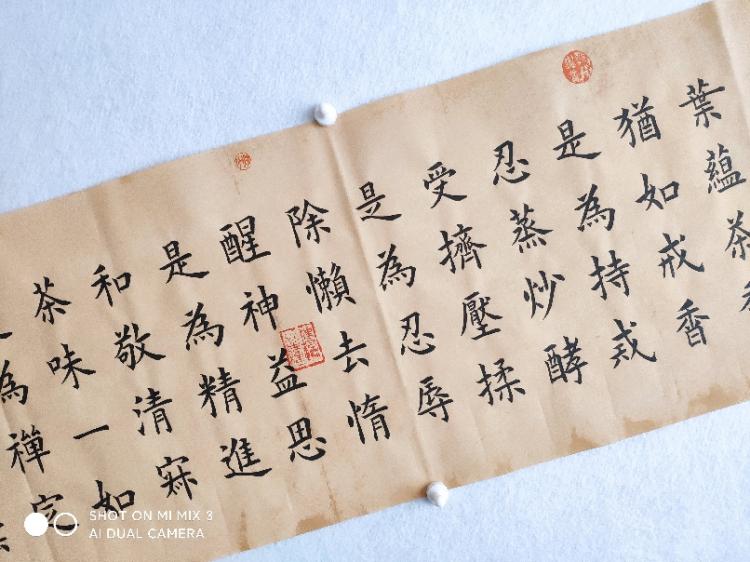 葉蘊茶
猶如戒香
是為持戒
忍蒸炒酵
受擠壓揉
是為忍辱
除懶去惰
醒神益思
是為精進
和敬清寂
茶味一如
為禪定
SHOT ON MI MIX 3
AI DUAL CAMERA